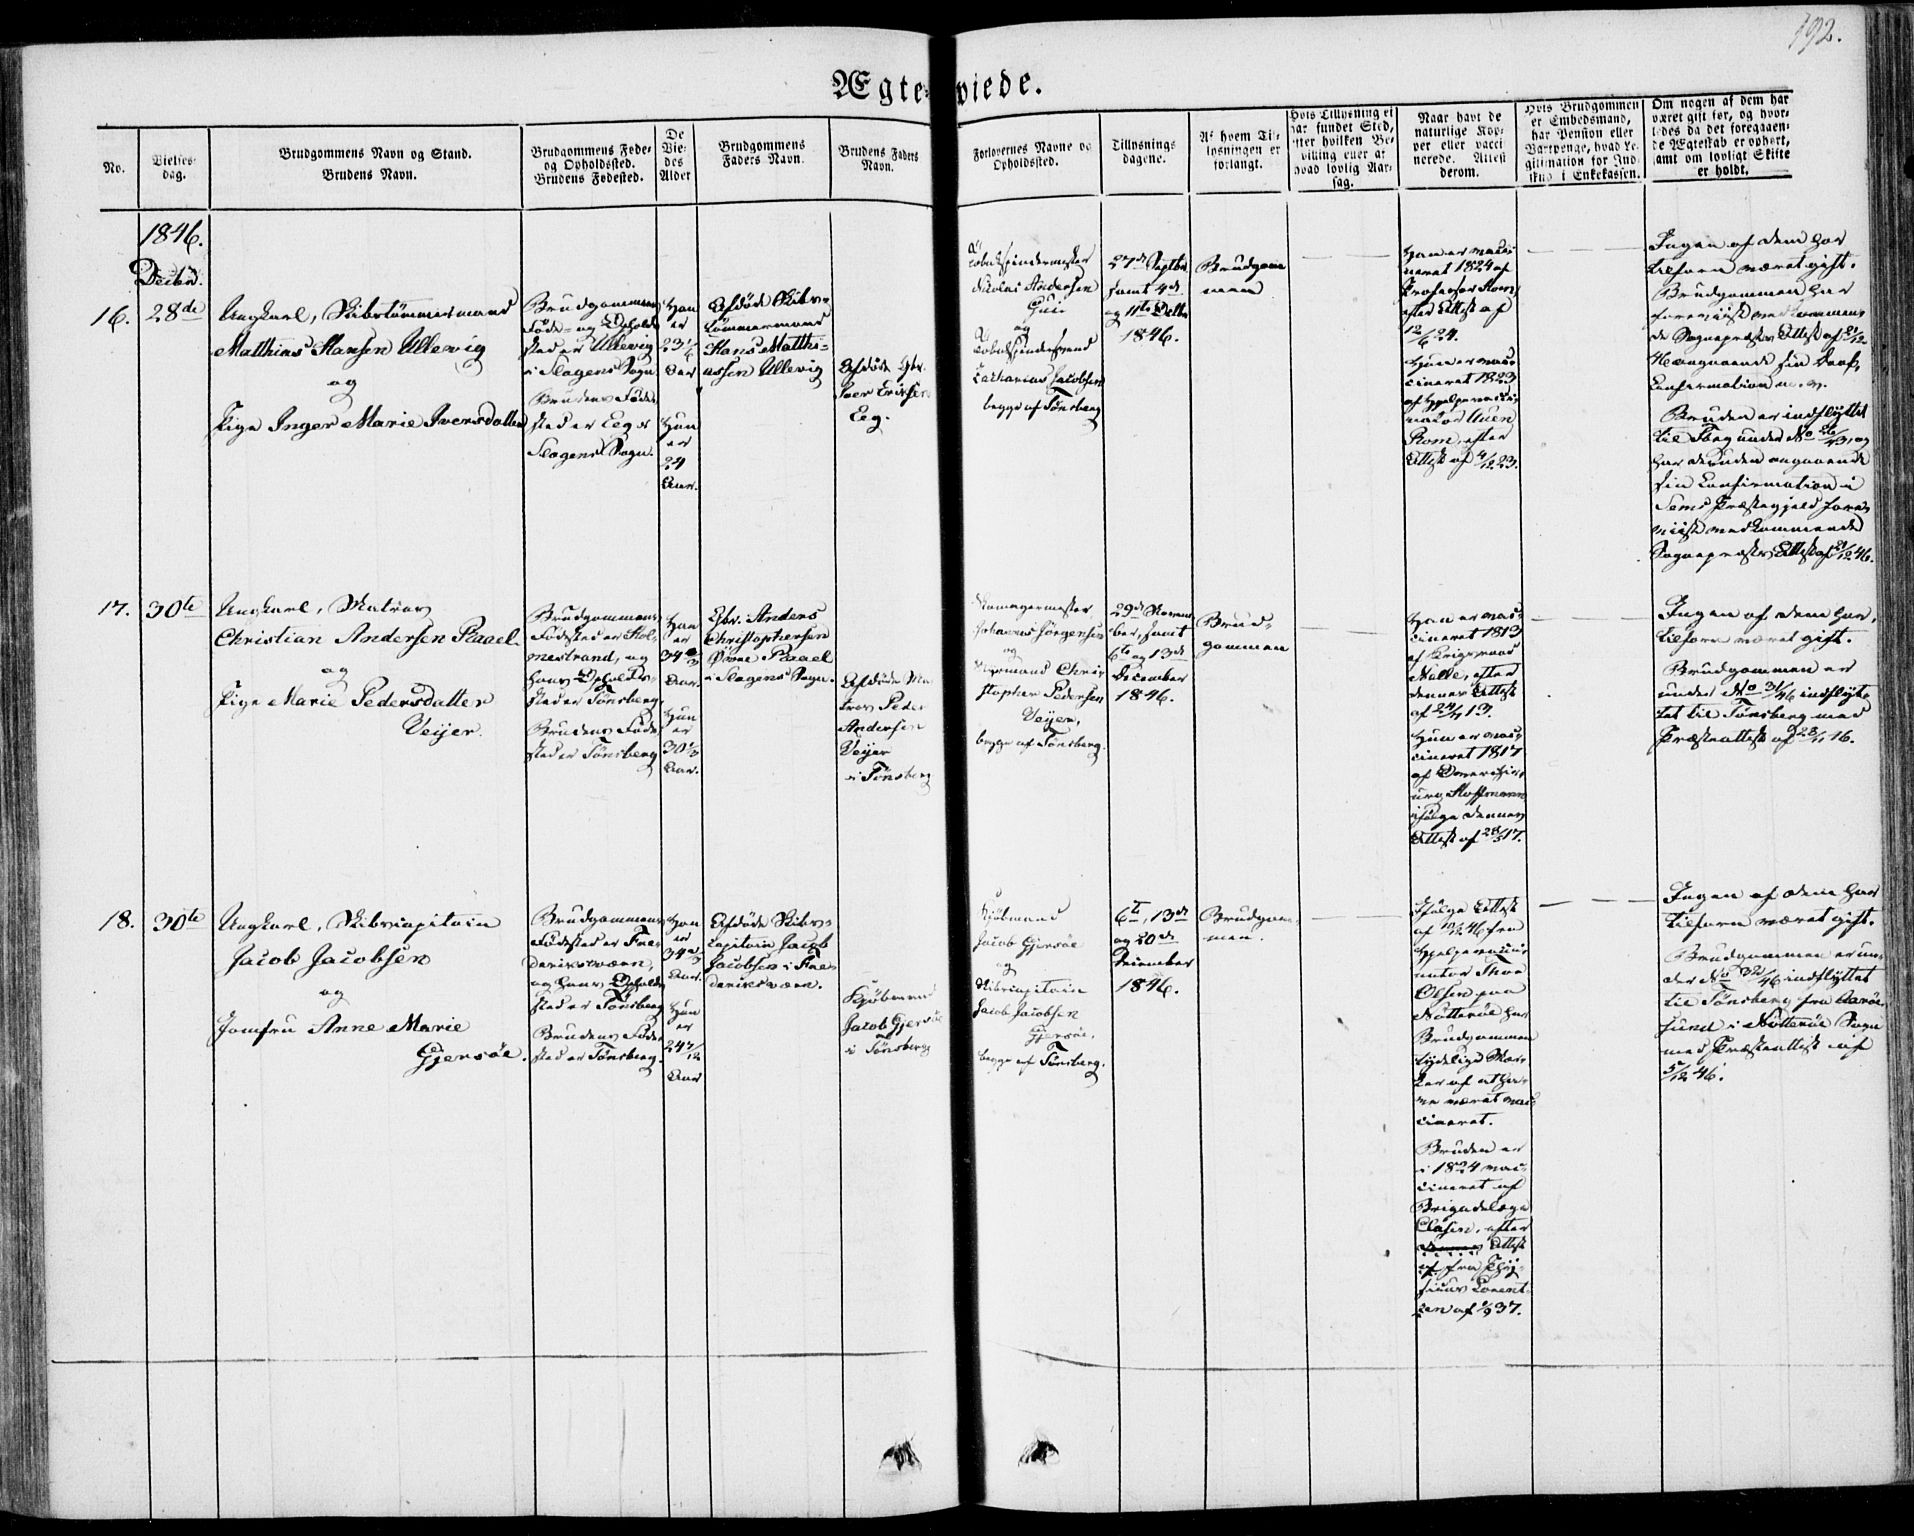 192.
Ægteviede.
No.
Vielses-
dag.
Brudgommens Navn og Stand.
Brudens Navn.
Brudgommens Føde-
og Opholdssted.
Brudens Fødested.
De
Vie-
des
Alder
Brudgommens
Faders Navn.
Brudens Faders
Navn.
Forlovernes Navne og
Opholdssted.
Tillysnings
dagene.
Af hvem Til-
lysningen er
forlangt.
Hvis Tillysning ei
har fundet Sted,
efter hvilken Be-
villing eller af
hvad lovlig Aar-
sag.
Naar havt de
naturlige Kop-
per eller vacci-
nerede. Attest
derom.
Hvis Brudgommen
er Embedsmand,
har Pension eller
Vartpenge, hvad Le-
gitimation for Ind-
skud i Enkekassen.
Om nogen af dem har
været gift før, og hvor-
ledes da det foregaaen-
de Ægteskab er ophørt,
samt om lovligt Skifte
er holdt.
1846.
Decbr.
16.
28de
Ungkarl, Skibstømmermand
Matthias Hansen Ullevig
og
Pige Inger Marie Iversdatter
Brudgommens
Føde- og Opholds-
sted er Ullevig
i Slagens Sogn
Brudens Føde-
sted er Eeg i
Slagens Sogn.
Han
er
23 1/6
Aar
Hun
er
24
Aar.
Afdøde Skibs-
tømmermand
Hans Matthi-
assen Ullevig
Afdøde Gbr.
Iver Eriksen
Eeg.
Tobakspindermester
Nicolai Andersen
og
Tobakspindersvend
Zacharias Jacobsen
begge af Tønsberg
27de Septbr
samt 4de
og 11te Octbr
1846.
Brudgom
men
Han er vacci-
neret 1824 af
Professor
efter Attest af
12/6 24.
Hun er vac-
cineret 1823
af Hjelpevacci-
nateur
Rom, efter
Attest af 4/12 23.
Ingen af dem har
tilforn været gift.
Brudgommen har
foreviist vedkommen-
de Sognepræsts Attest af 21/12
46 angaaende sin Daab,
Confirmation m. v.
Bruden er indflyttet
til Tbrg under No 26/43, og
har desuden angaaende
sin Confirmation i
Sems Præstegjeld fore-
viist vedkommende
Sognepræsts Attest af 21/12 46.
17.
30te
Ungkarl, Matros
Christian Andersen Raael
og
Pige Marie Pedersdatter
Veijer.
Brudgommens
Fødested er Hol-
mestrand, og
hans Opholds-
sted er Tønsberg,
Brudens Føde-
sted er Tønsberg
Han
er
34 2/3
Aar.
Hun
er
30 1/3
Aar.
Gbr. Anders
Christophersen
Øvre Raael
i Slagens Sogn.
Afdøde Ma-
tros Peder
Andersen
Veijer
i Tønsberg
Johannes Jørgensen
og
Styrmand Chri-
stopher Pedersen
Veijer,
begge af Tønsberg.
29de Novem
ber, samt
6te og 13de
December
1846.
Brud-
gommen
Han er vac-
cineret 1813
af Krigsraad
Nulle, efter
dennes Attest
af 24/7 13.
Hun er vac-
cineret 1817
af Overchir-
urg Hoffmann
ifølge dennes
Attest af 28/5 17.
Ingen af dem har,
tilforn været gift.
Brudgommen er
under No 31/46 indflyt-
tet til Tønsberg med
Præsteattest af 28/11 16.
18.
30te
Ungkarl, Skibscapitain
Jacob Jacobsen
og
Jomfru Anne Marie
Gjersøe.
Brudgommens
Fødested er Fre-
deriksværn,
og hans Opholds-
sted er Tønsberg
Brudens Føde-
sted er Tønsberg.
Han
er
34 2/3
Aar.
Hun
er
24 7/12
Aar
Afdøde Skibs-
capitain Jacob
Jacobsen i Fre-
deriksværn.
Kjøbmand
Jacob Gjersøe
i Tønsberg
Kjøbmand
Jacob Gjersøe
og
Skibscapitain
Jacob Jacobsen
Gjersøe,
begge af Tønsberg.
6te, 13de
og 20de
December
1846.
Brudgom-
men.
Ifølge Attest
af 10/12 46 fra
Hjelpevacci-
nateur Thor
Olsen paa
Nøtterøe har
Brudgommen
tydelige Mær-
ker af at ha-
ve været vac-
cineret.
Bruden er
i 1824 vac-
cineret af
Brigadelæge
Clasen, efter
dennes Attest
af fra Phy-
sicus Lorent-
zen af 1/9 37.
Ingen af dem har
tilforn været gift.
Brudgommen er un-
der No 32/46 indflyttet
til Tønsberg fra Aarøe-
sund i Nøtterøe Sogn
med Præsteattest af
5/12 46.